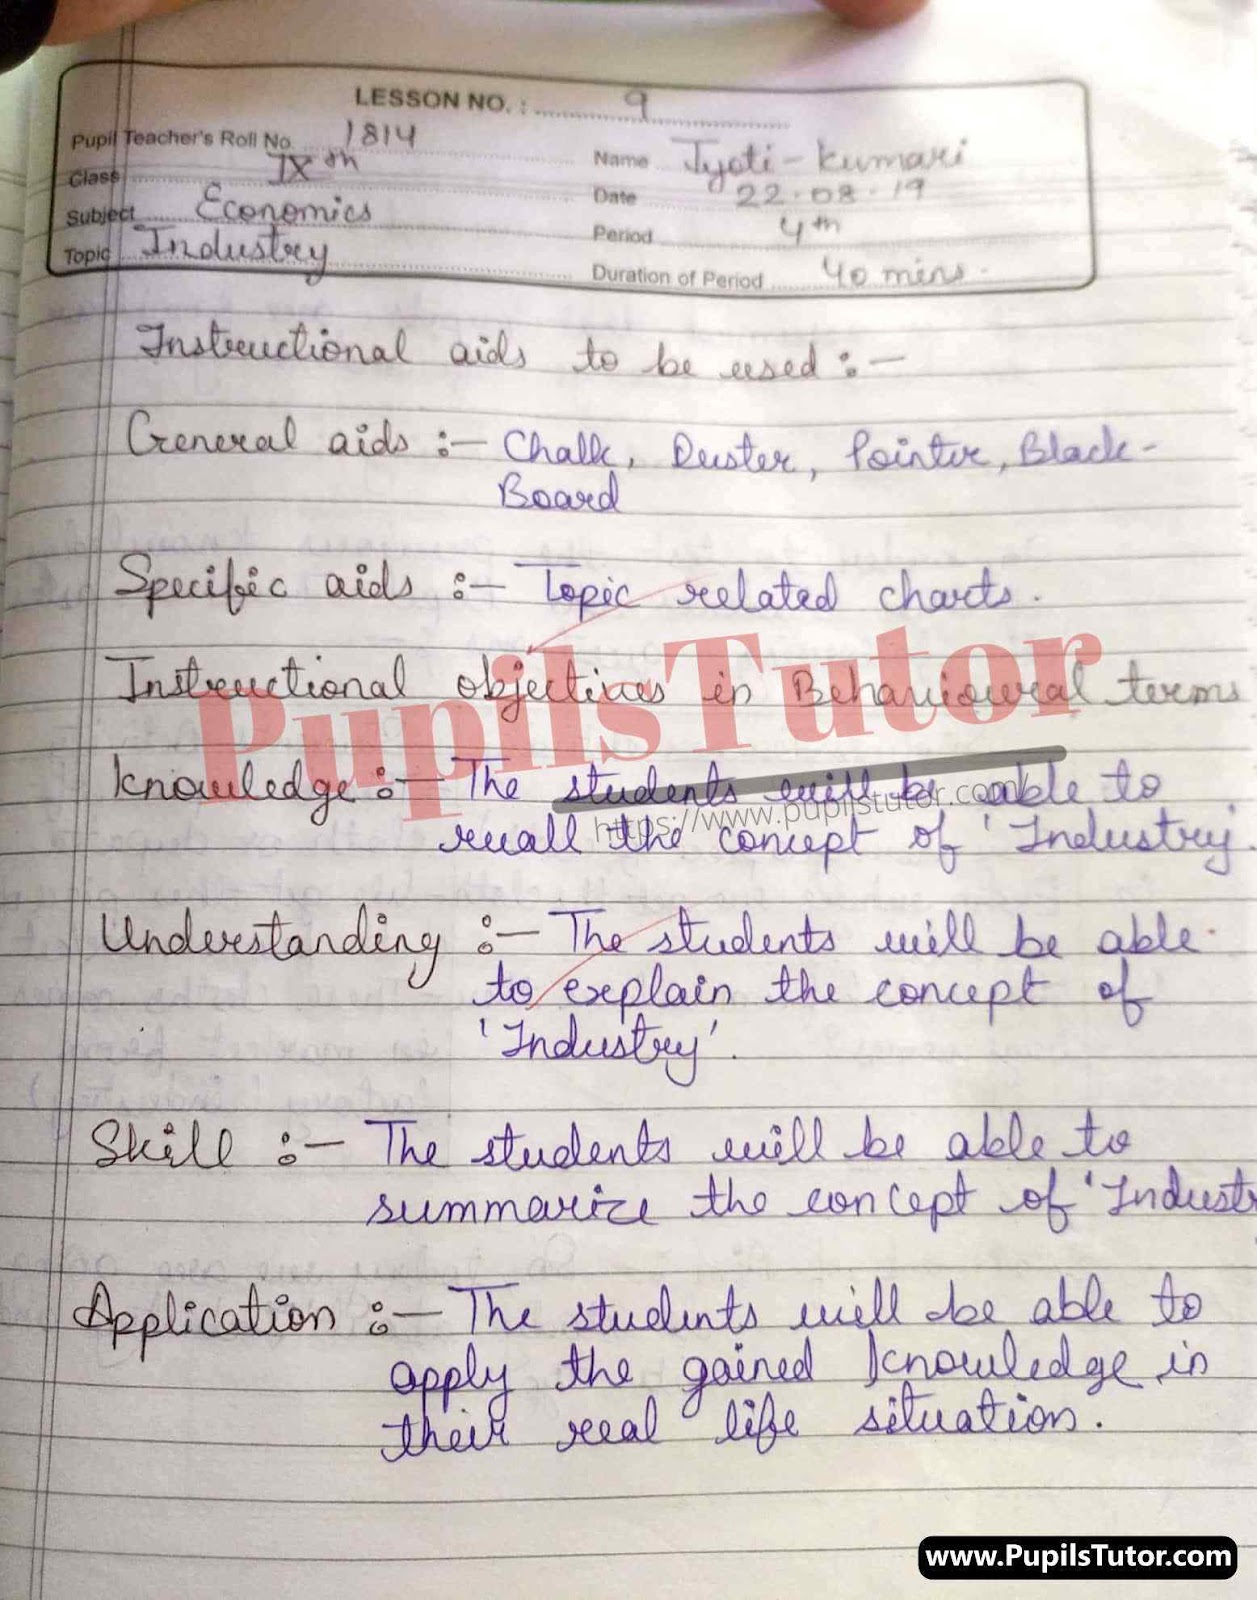 LESSON NO. : 9
Pupil Teacher's Roll No. 1814
Name Jyoti-Kumari
Class IXth
Date 22.08.19
Subject Economics
Period 4th
Topic Industry
Duration of Period 40 mins.
Instructional aids to be used :-
General aids :- Chalk, Duster, Pointer, Black-
Board
Specific aids :- Topic related charts.
Instructional objectives in Behavioural terms
PupilsTutor
Knowledge :- The students will be able to
https://www.pupilstutor.com
recall the concept of 'Industry'.
Understanding :- The students will be able
to explain the concept of
'Industry'.
Skill :- The students will be able to
summarize the concept of 'Indust
Application :- The students will be able to
apply the gained knowledge in
their real life situation.
www.PupilsTutor.com